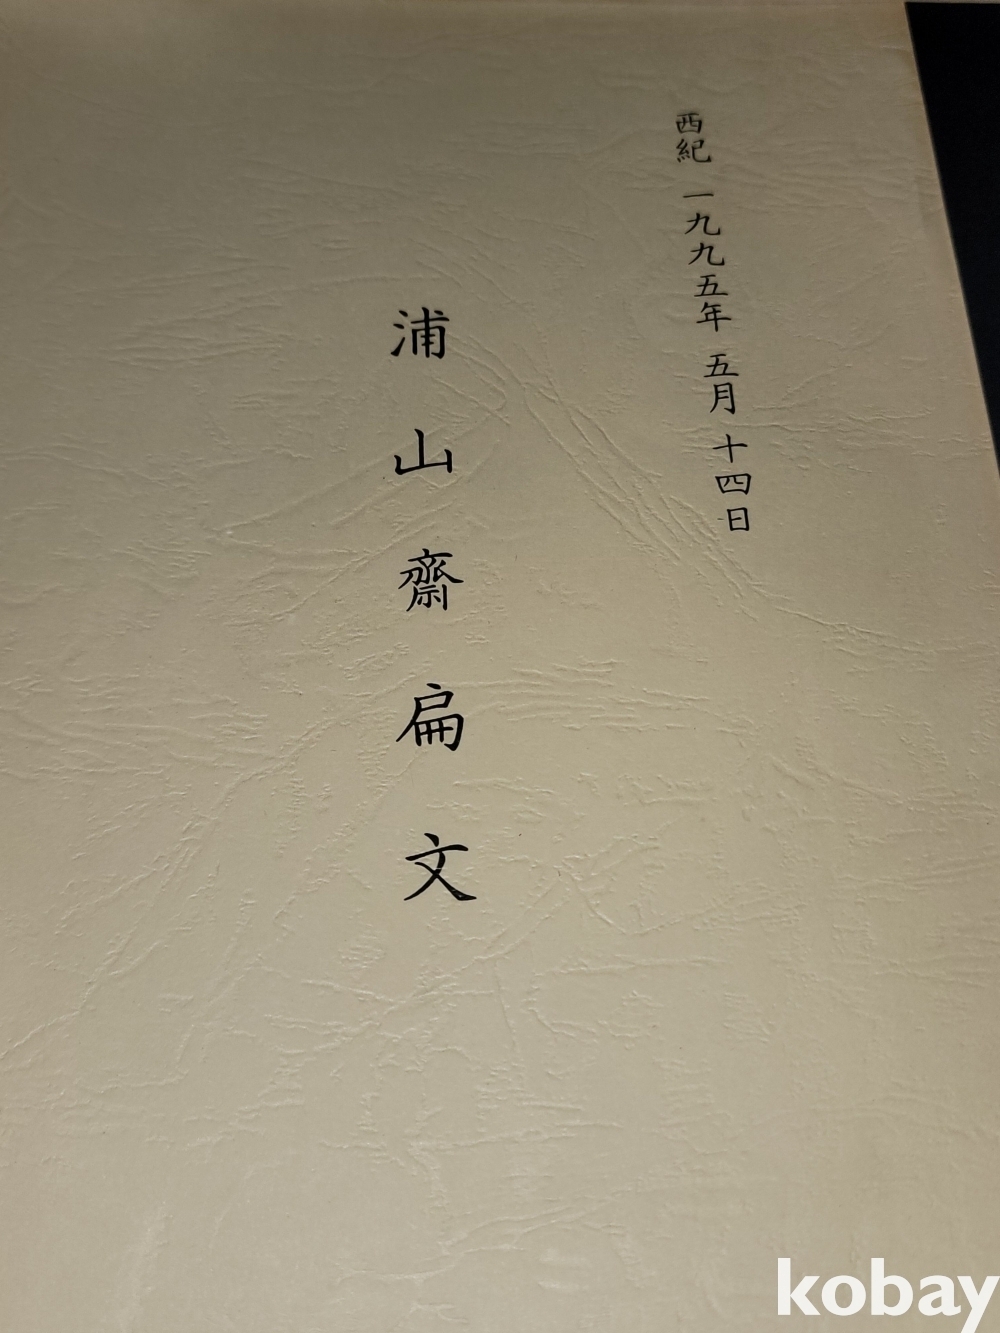 西紀 一九九五年 五月 十四日
浦山齋扁文
kobay